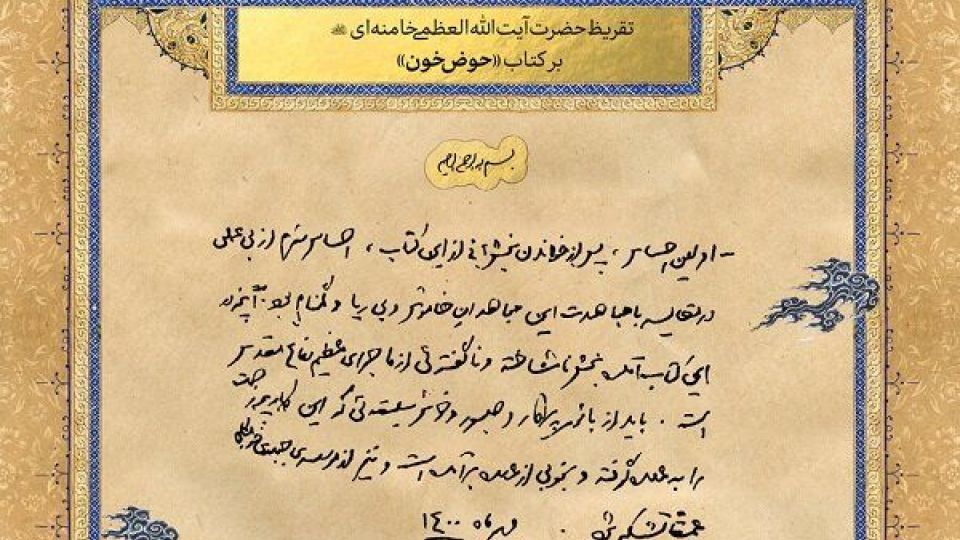 تقریظ حضرت آیت الله العظمی خامنه‌ای
بر کتاب «حوض خون»
بسم الله الرحمن الرحیم
- اولین احساس، پس از خواندن بخشهائی از این کتاب، احساس شرم از بی‌عملی
در مقایسه با مجاهدت این مجاهدان خاموش و بی‌ریا و گمنام بود. آنچه در
این کتاب آمده بخش ناشناخته و ناگفته‌ئی از ماجرای عظیم دفاع مقدس
است. باید از بانوی پرکار و صبور و خوش‌سلیقه‌ئی که این کار پرزحمت
را به عهده گرفته و بخوبی از عهده برآمده است و نیز از مؤسسه‌ی جبهه‌ی فرهنگی
عمیقاً تشکر شود. مهر ماه ۱۴۰۰